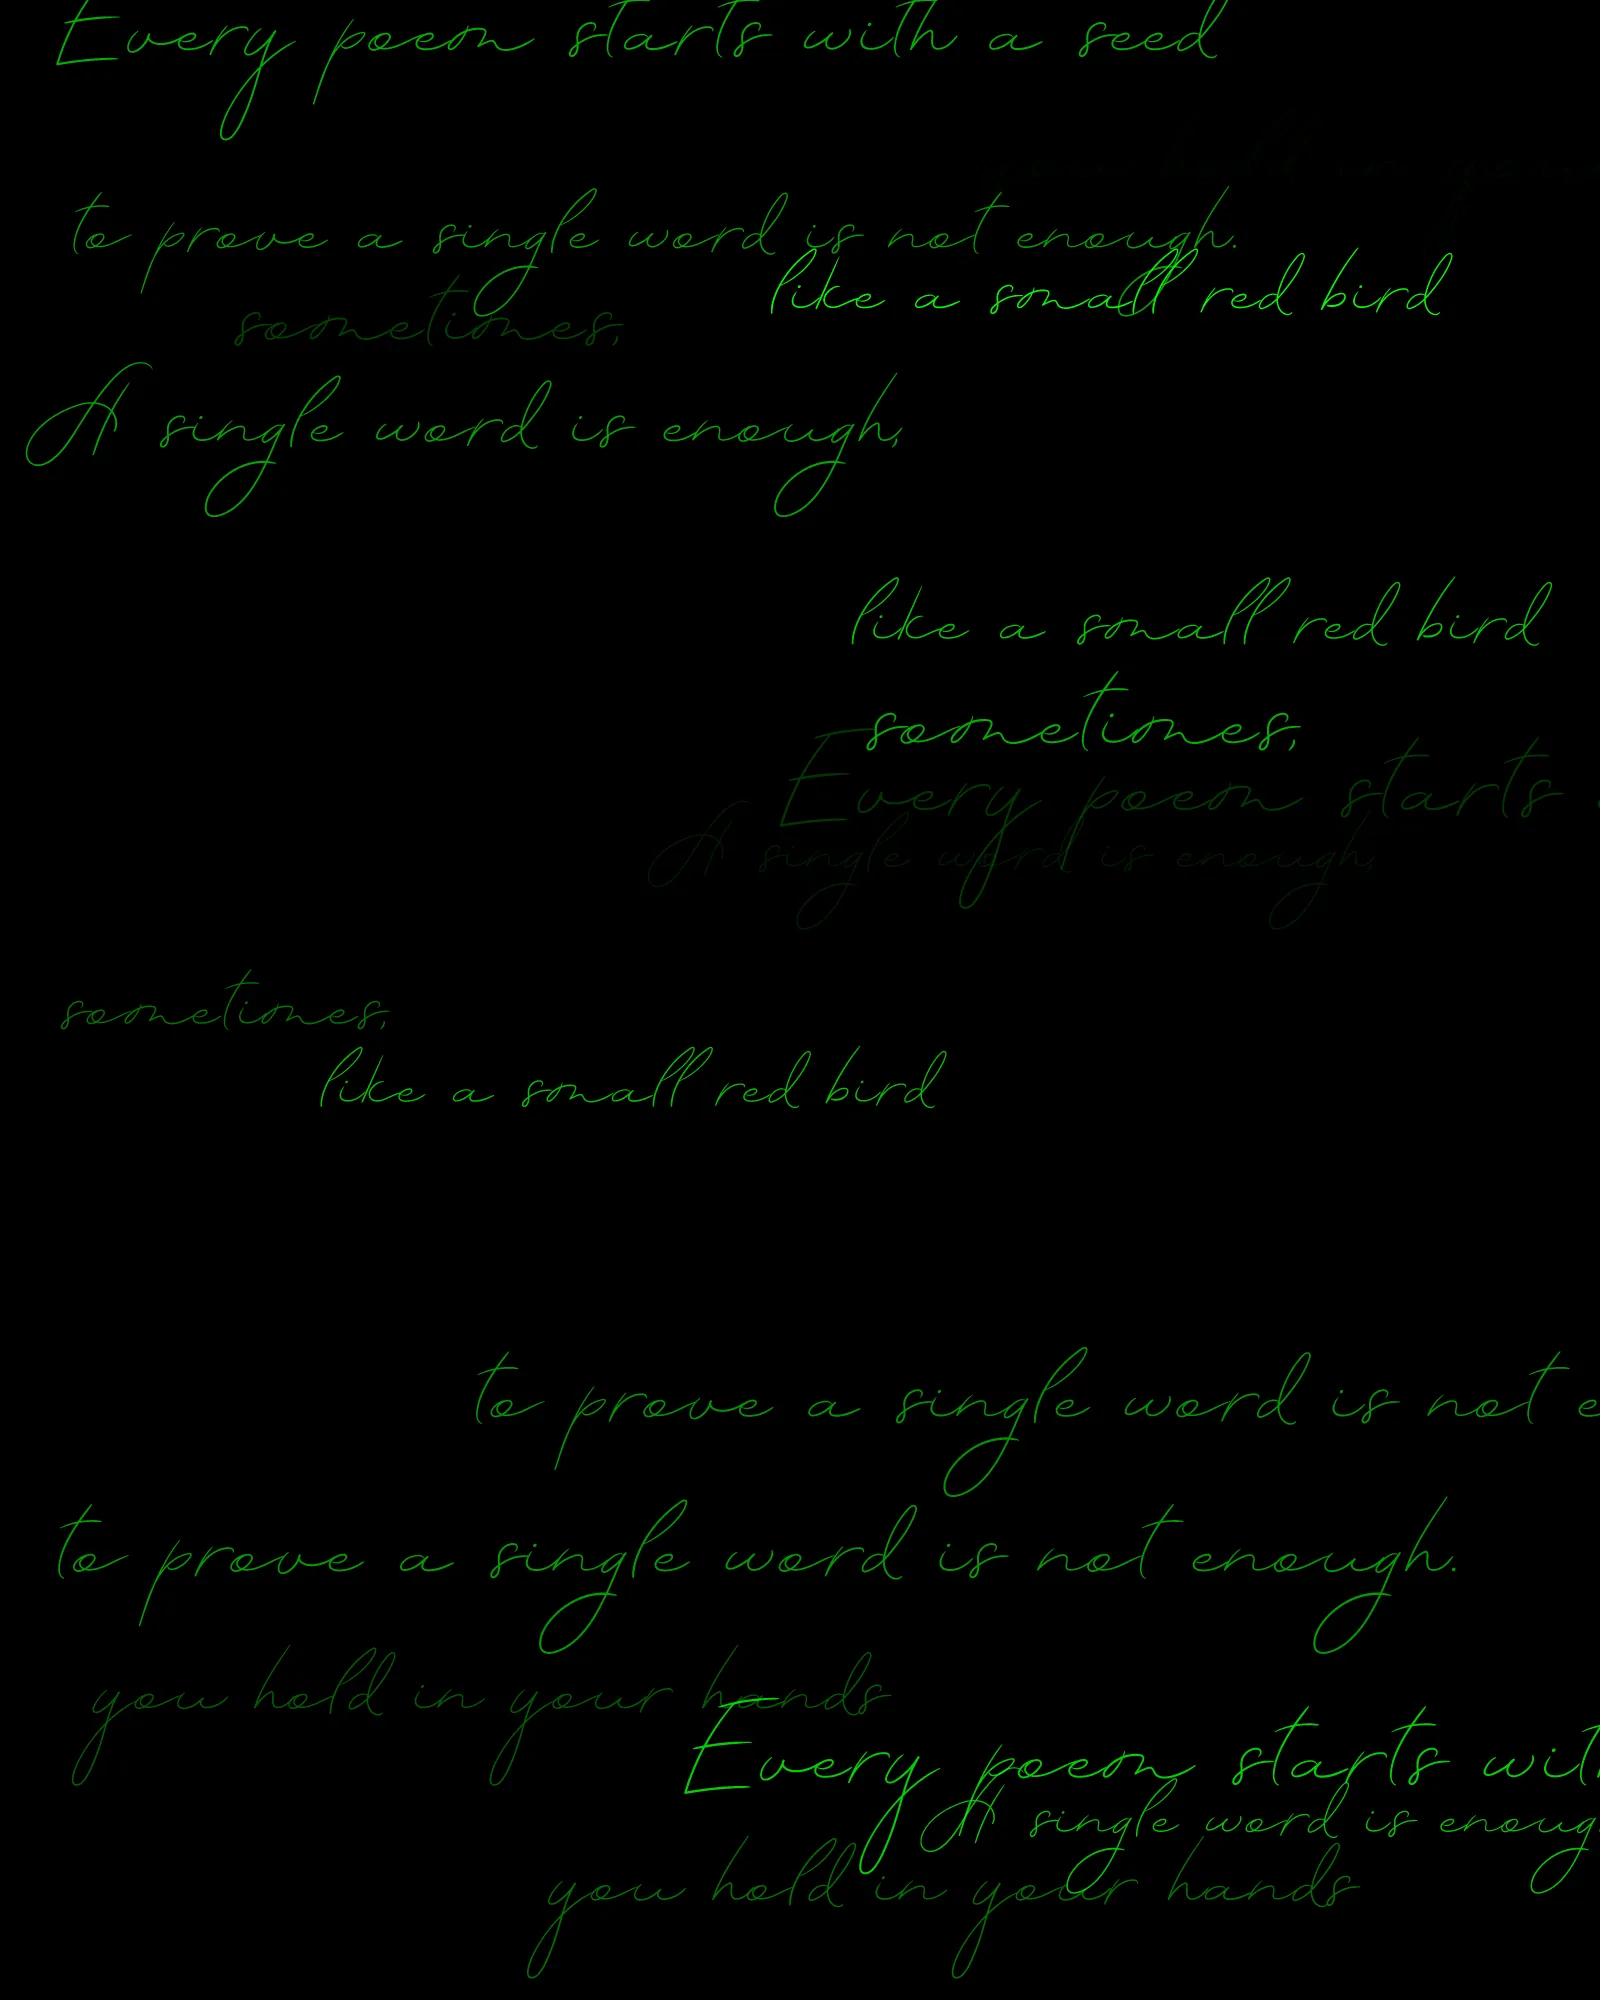 Every poem starts with a seed
you hold in your
to prove a single word is not enough.
like a small red bird
sometimes,
A single word is enough,
like a small red bird
sometimes,
Every poem starts
A single word is enough,
sometimes,
like a small red bird
to prove a single word is not e
to prove a single word is not enough.
you hold in your hands
Every poem starts wit
A single word is enoug
you hold in your hands